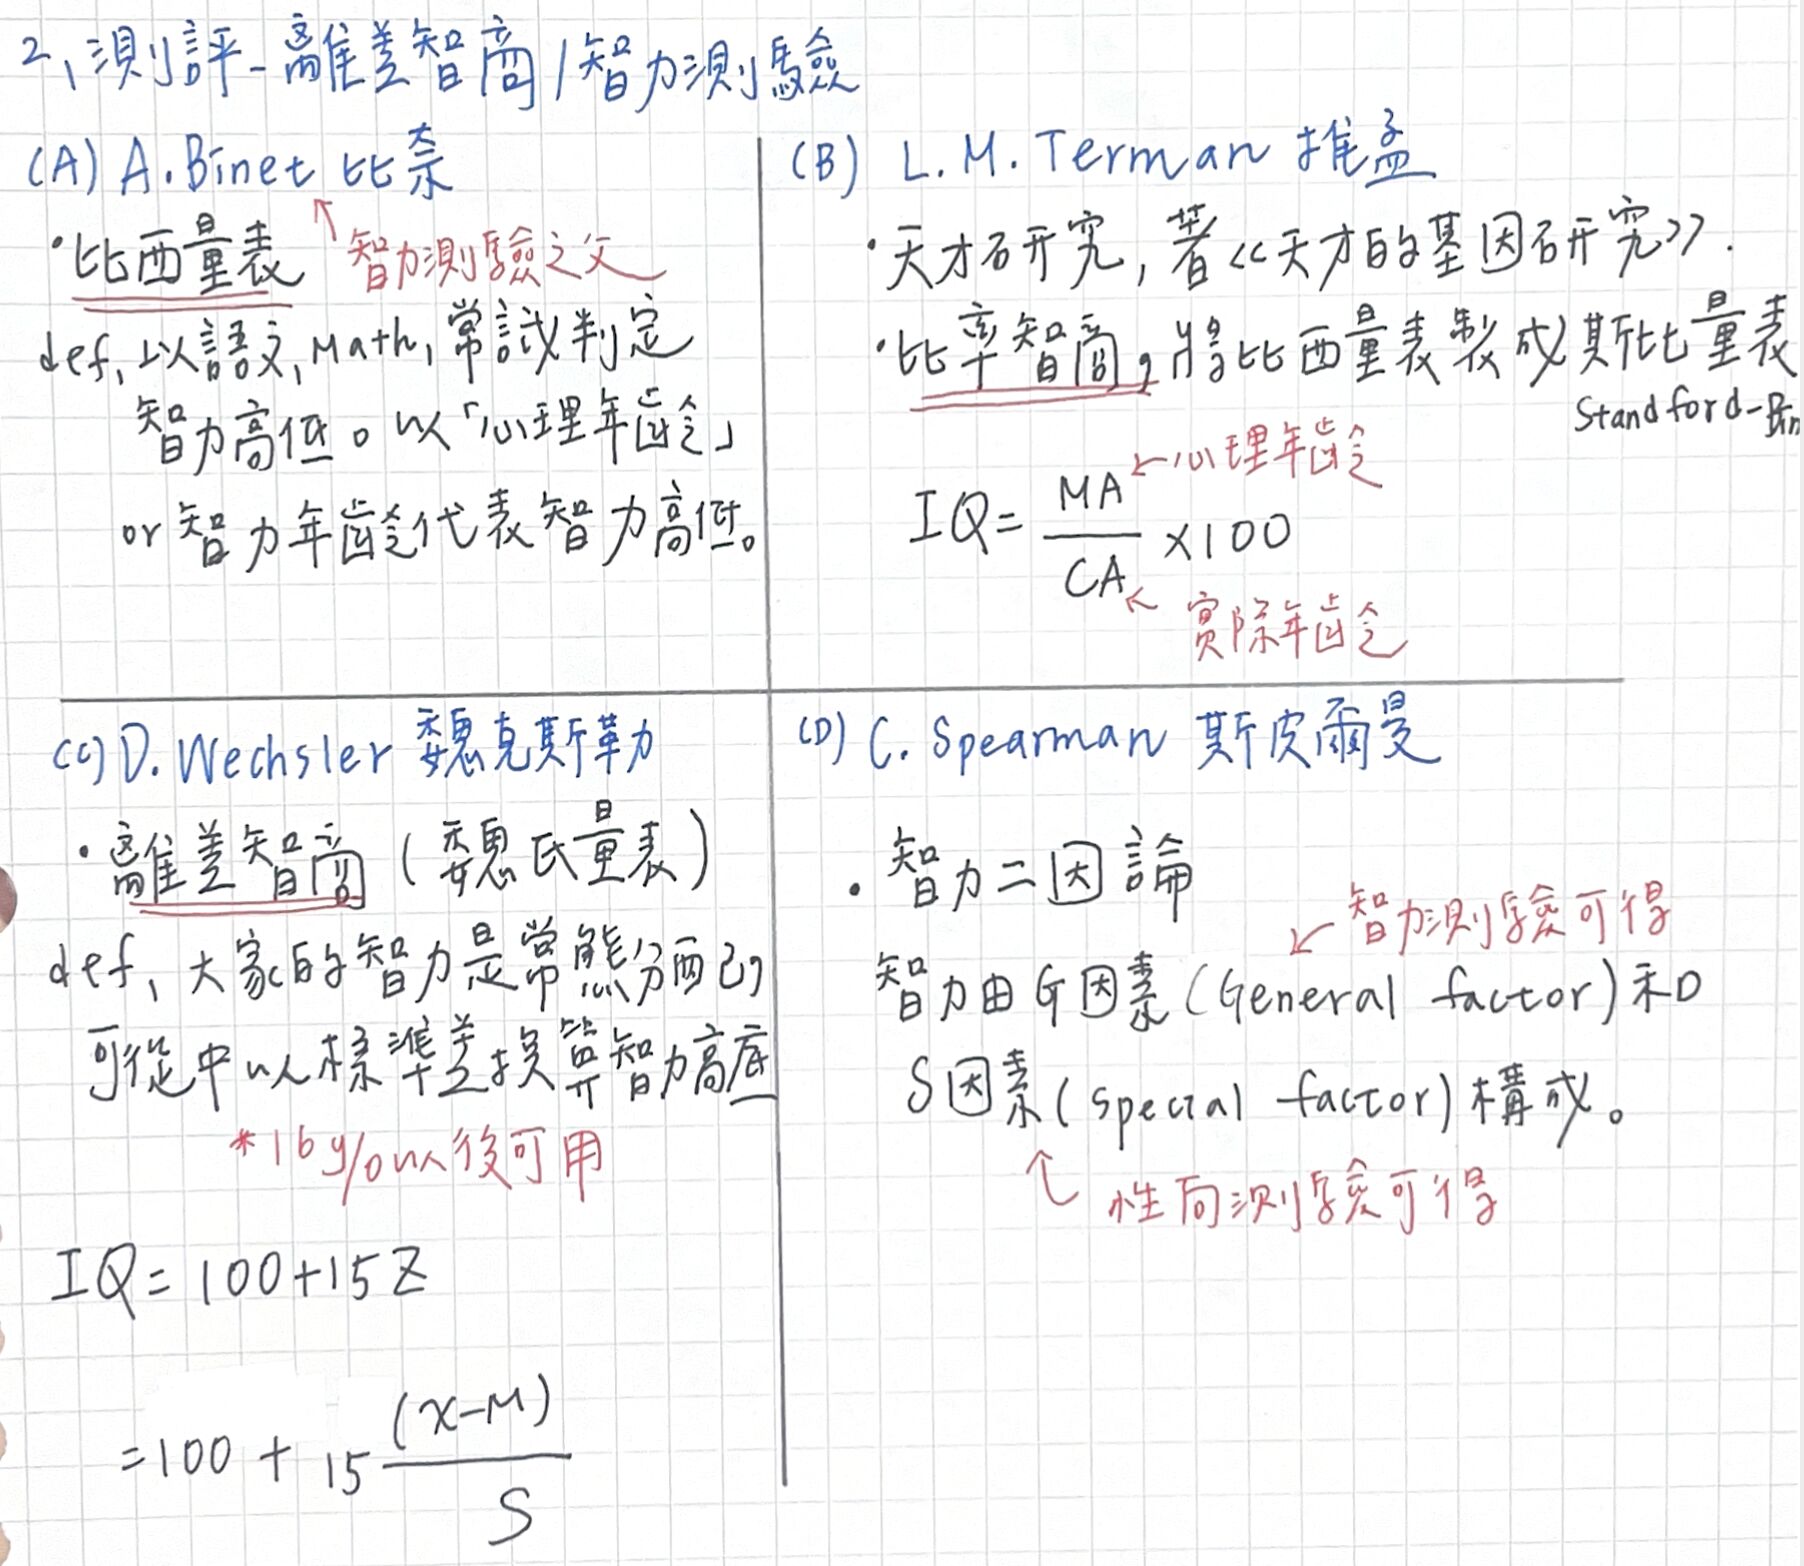 2、測評-離差智商/智力測驗
(A) A.Binet 比奈
智力測驗之父
•比西量表
def、以語文、Math、常識判定
智力高低。以「心理年齡」
or 智力年齡代表智力高低。
(B) L.M.Terman 推孟
•天才研究,著<<天才的基因研究>>.
•比率智商,將比西量表製成斯比量表
Standford-Bin
IQ= MA/CA ×100
←心理年齡
實際年齡
(C) D.Wechsler 魏克斯勒
•離差智商(魏氏量表)
def、大家的智力是常態分配的
可從中以標準差換算智力高底
*16y/o以後可用
IQ=100+15Z
=100+15 (x-M)/S
(D) C.Spearman 斯皮爾曼
•智力二因論
智力測驗可得
智力由G因素(General factor)和
S因素(special factor)構成。
性向測驗可得